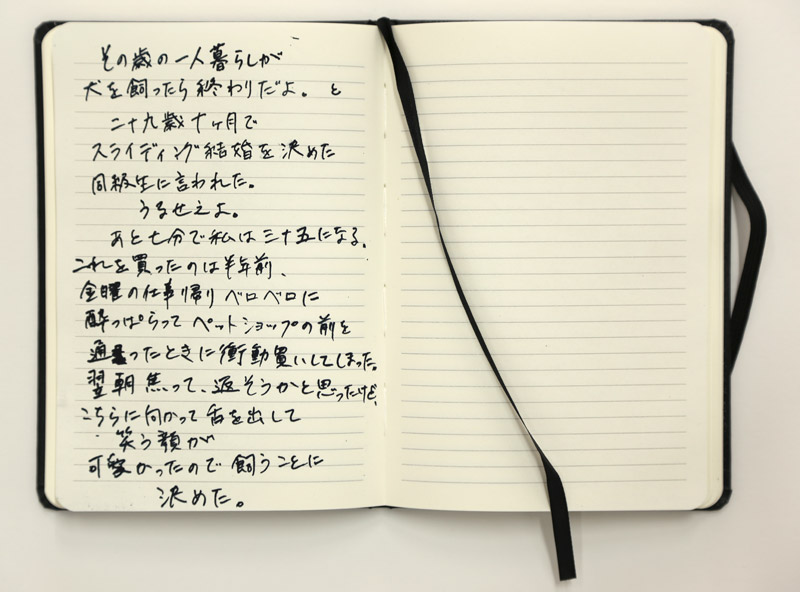 その歳の一人暮らしが
犬を飼ったら終わりだよ。と
二十九歳十ヶ月で
スライディング結婚を決めた
同級生に言われた。
うるせえよ。
あと七分で私は三十五になる。
これを買ったのは半年前、
金曜の仕事帰りベロベロに
酔っぱらってペットショップの前を
通ったときに衝動買いしてしまった。
翌朝焦って、返そうかと思ったけど、
こちらに向かって舌を出して
笑う顔が
可愛かったので飼うことに
決めた。